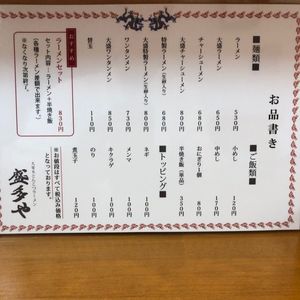 お品書き
■麺類■
ラーメン 530円
大盛ラーメン 650円
チャーシューメン
大盛チャーシューメン
特製ラーメン 680円
大盛特製ラーメン 800円
ワンタンメン 730円
大盛ワンタンメン 850円
替玉 110円
おすすめ
ラーメンセット 830円
セット内容…ラーメン＋半焼き飯
(各種ラーメン差額で出来ます。)
※なくなり次第終了。
■ご飯類■
小めし 120円
中めし 170円
おにぎり1個 80円
半焼き飯(単品) 350円
■トッピング■
ネギ 100円
メンマ 100円
キクラゲ 100円
のり 100円
煮玉子
※お値段はすべて税込み価格
となっております。